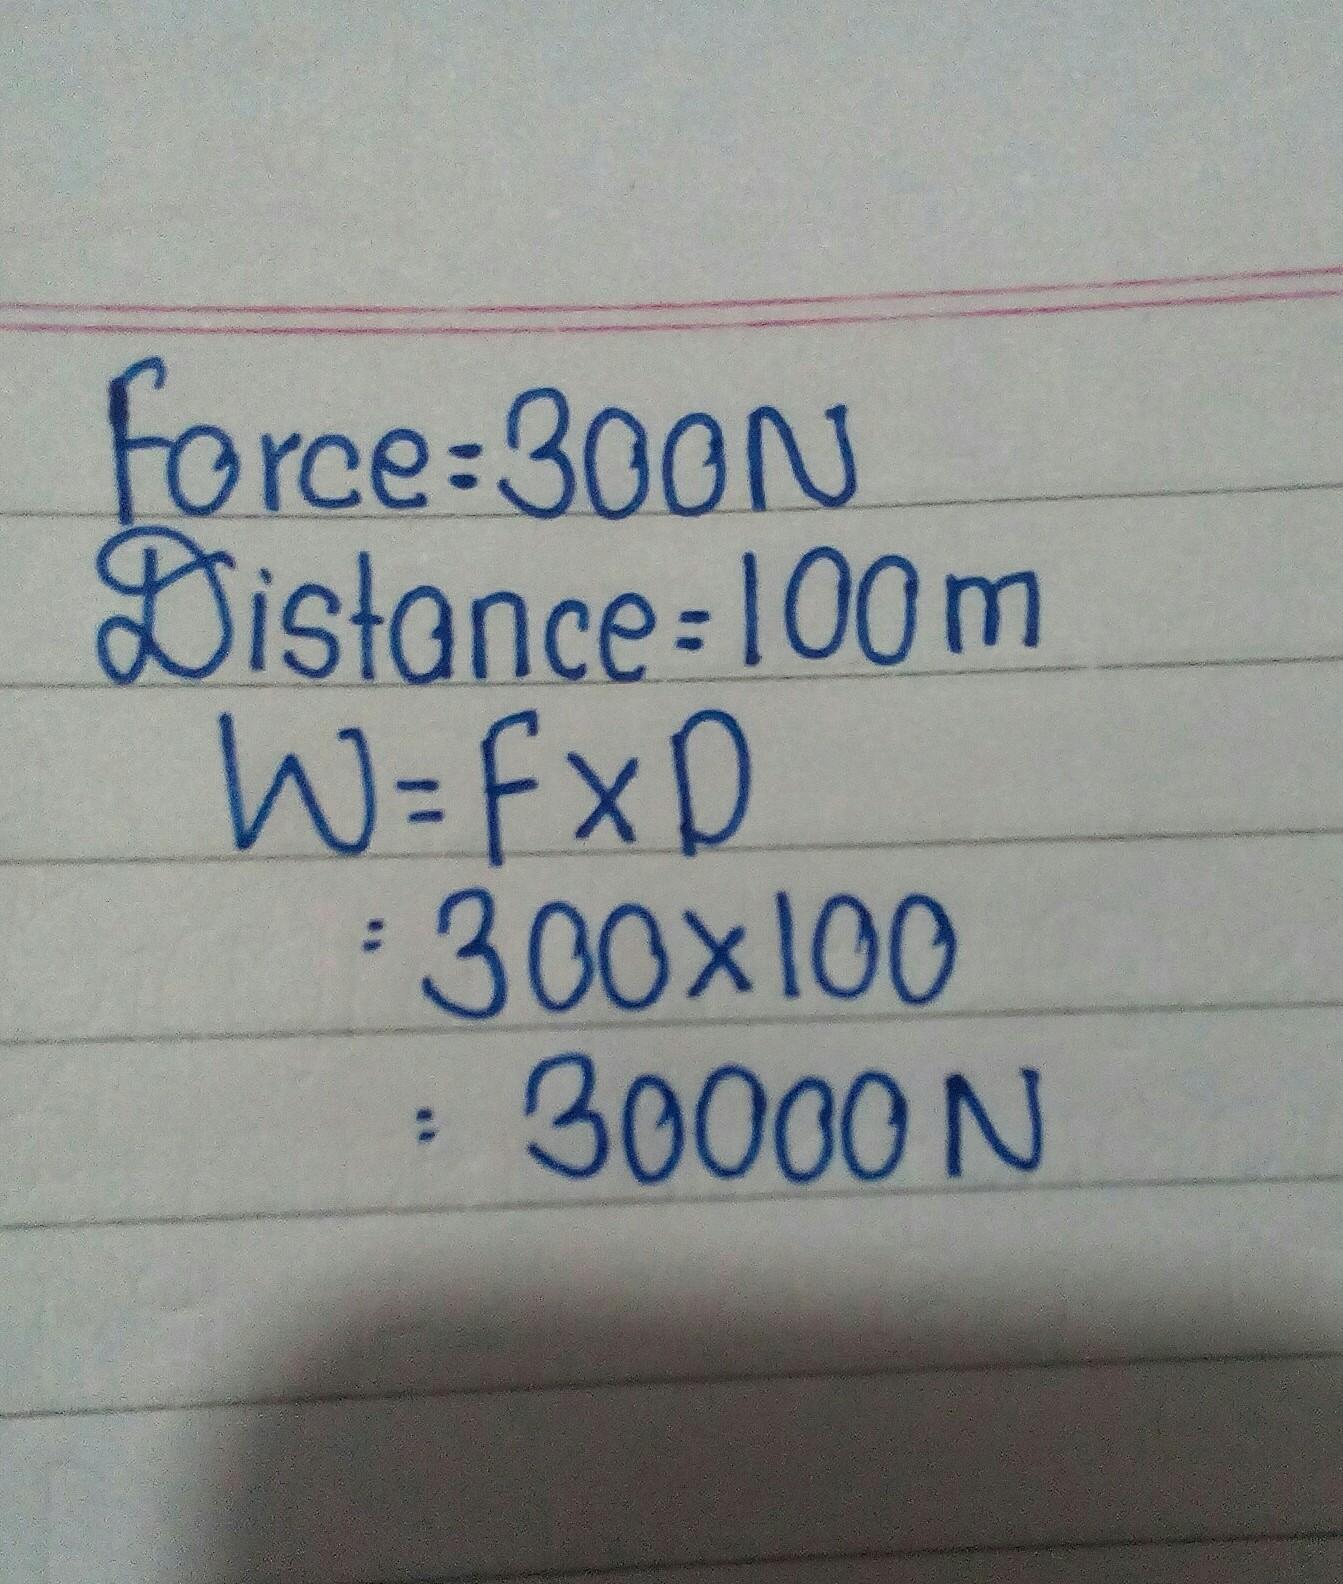 Force=300N
Distance=100m
W=F×D
=300×100
= 30000N